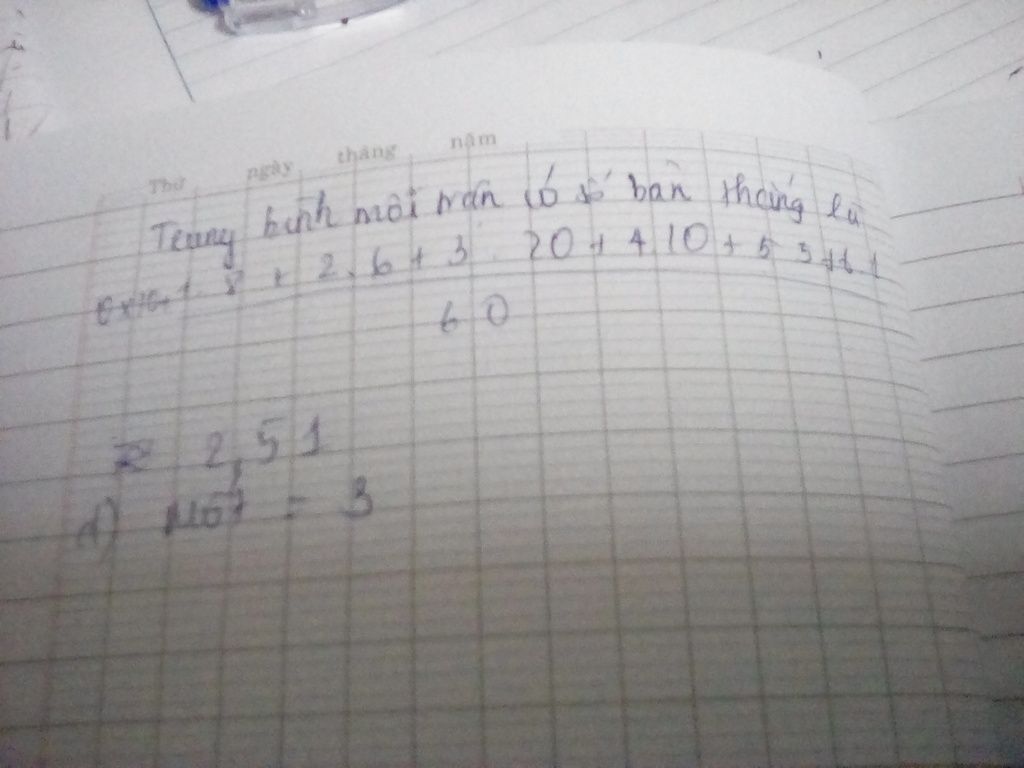 Thứ ngày tháng năm
Trung bình mỗi trận có số bàn thắng là
1. 8 + 2. 6 + 3. 20 + 4 10 + 5 5 + 6 1
60
≈ 2,51
d) Mốt = 3